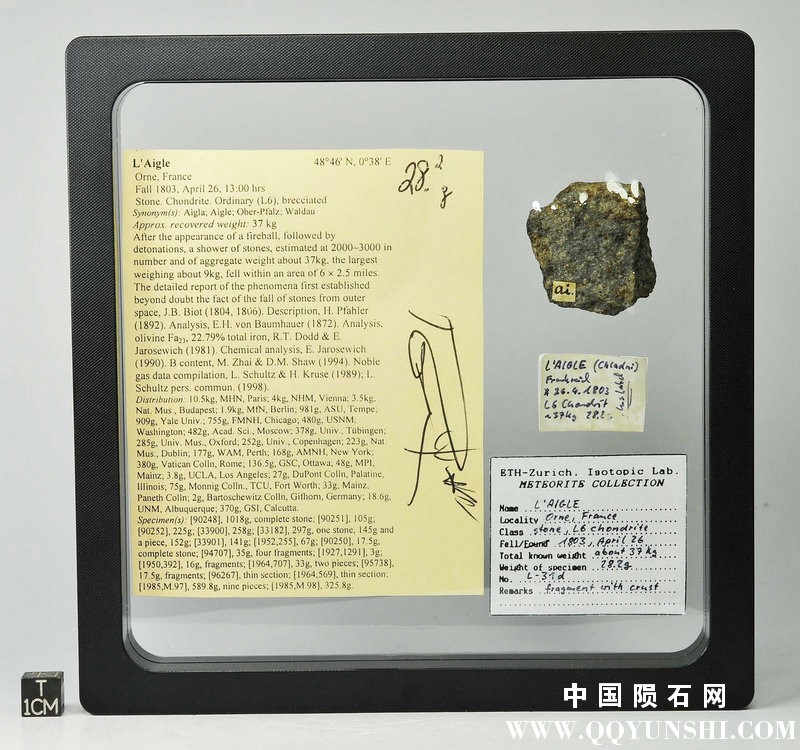 L'Aigle 48°46' N, 0°38' E
Orne, France
Fall 1803, April 26, 13:00 hrs
Stone. Chondrite. Ordinary (L6), brecciated
Synonym(s): Aigla; Aigle; Ober-Pfalz; Waldau
Approx. recovered weight: 37 kg
After the appearance of a fireball, followed by
detonations, a shower of stones, estimated at 2000–3000 in
number and of aggregate weight about 37kg, the largest
weighing about 9kg, fell within an area of 6 × 2.5 miles.
The detailed report of the phenomena first established
beyond doubt the fact of the fall of stones from outer
space, J.B. Biot (1804, 1806). Description, H. Pfahler
(1892). Analysis, E.H. von Baumhauer (1872). Analysis,
olivine Fa23, 22.79% total iron, R.T. Dodd & E.
Jarosewich (1981). Chemical analysis, E. Jarosewich
(1990). B content, M. Zhai & D.M. Shaw (1994). Noble
gas data compilation, L. Schultz & H. Kruse (1989); L.
Schultz pers. commun. (1998).
Distribution: 10.5kg, MHN, Paris; 4kg, NHM, Vienna; 3.5kg,
Nat. Mus., Budapest; 1.9kg, MfN, Berlin; 981g, ASU, Tempe;
909g, Yale Univ.; 755g, FMNH, Chicago; 480g, USNM,
Washington; 482g, Acad. Sci., Moscow; 378g, Univ., Tübingen;
285g, Univ. Mus., Oxford; 252g, Univ., Copenhagen; 223g, Nat.
Mus., Dublin; 177g, WAM, Perth; 168g, AMNH, New York;
380g, Vatican Colln, Rome; 136.5g, GSC, Ottawa; 48g, MPI,
Mainz; 3.8g, UCLA, Los Angeles; 27g, DuPont Colln, Palatine,
Illinois; 75g, Monnig Colln., TCU, Fort Worth; 33g, Mainz,
Paneth Colln; 2g, Bartoschewitz Colln, Gifhorn, Germany; 18.6g,
UNM, Albuquerque; 370g, GSI, Calcutta.
Specimen(s): [90248], 1018g, complete stone; [90251], 105g;
[90252], 225g; [33900], 258g; [33182], 297g, one stone, 145g and
a piece, 152g; [33901], 141g; [1952,255], 67g; [90250], 17.5g,
complete stone; [94707], 35g, four fragments; [1927,1291], 3g;
[1950,392], 16g, fragments; [1964,707], 33g, two pieces; [95738],
17.5g, fragments; [96267], thin section; [1964,569], thin section;
[1985,M.97], 589.8g, nine pieces; [1985,M.98], 325.8g.
28.2 g
ai.
L'AIGLE (Chladni)
Frankreich
26.4.1803
L6 Chondrit
~37kg 28.2g
ETH-Zurich, Isotopic Lab.
METEORITE COLLECTION
Name L'AIGLE
Locality Orne, France
Class stone, L6 chondrite
Fell/Found 1803, April 26
Total known weight about 37 kg
Weight of specimen 28.2g
No. L-31d
Remarks fragment with crust
T
1CM
中国陨石网
WWW.QQYUNSHI.COM